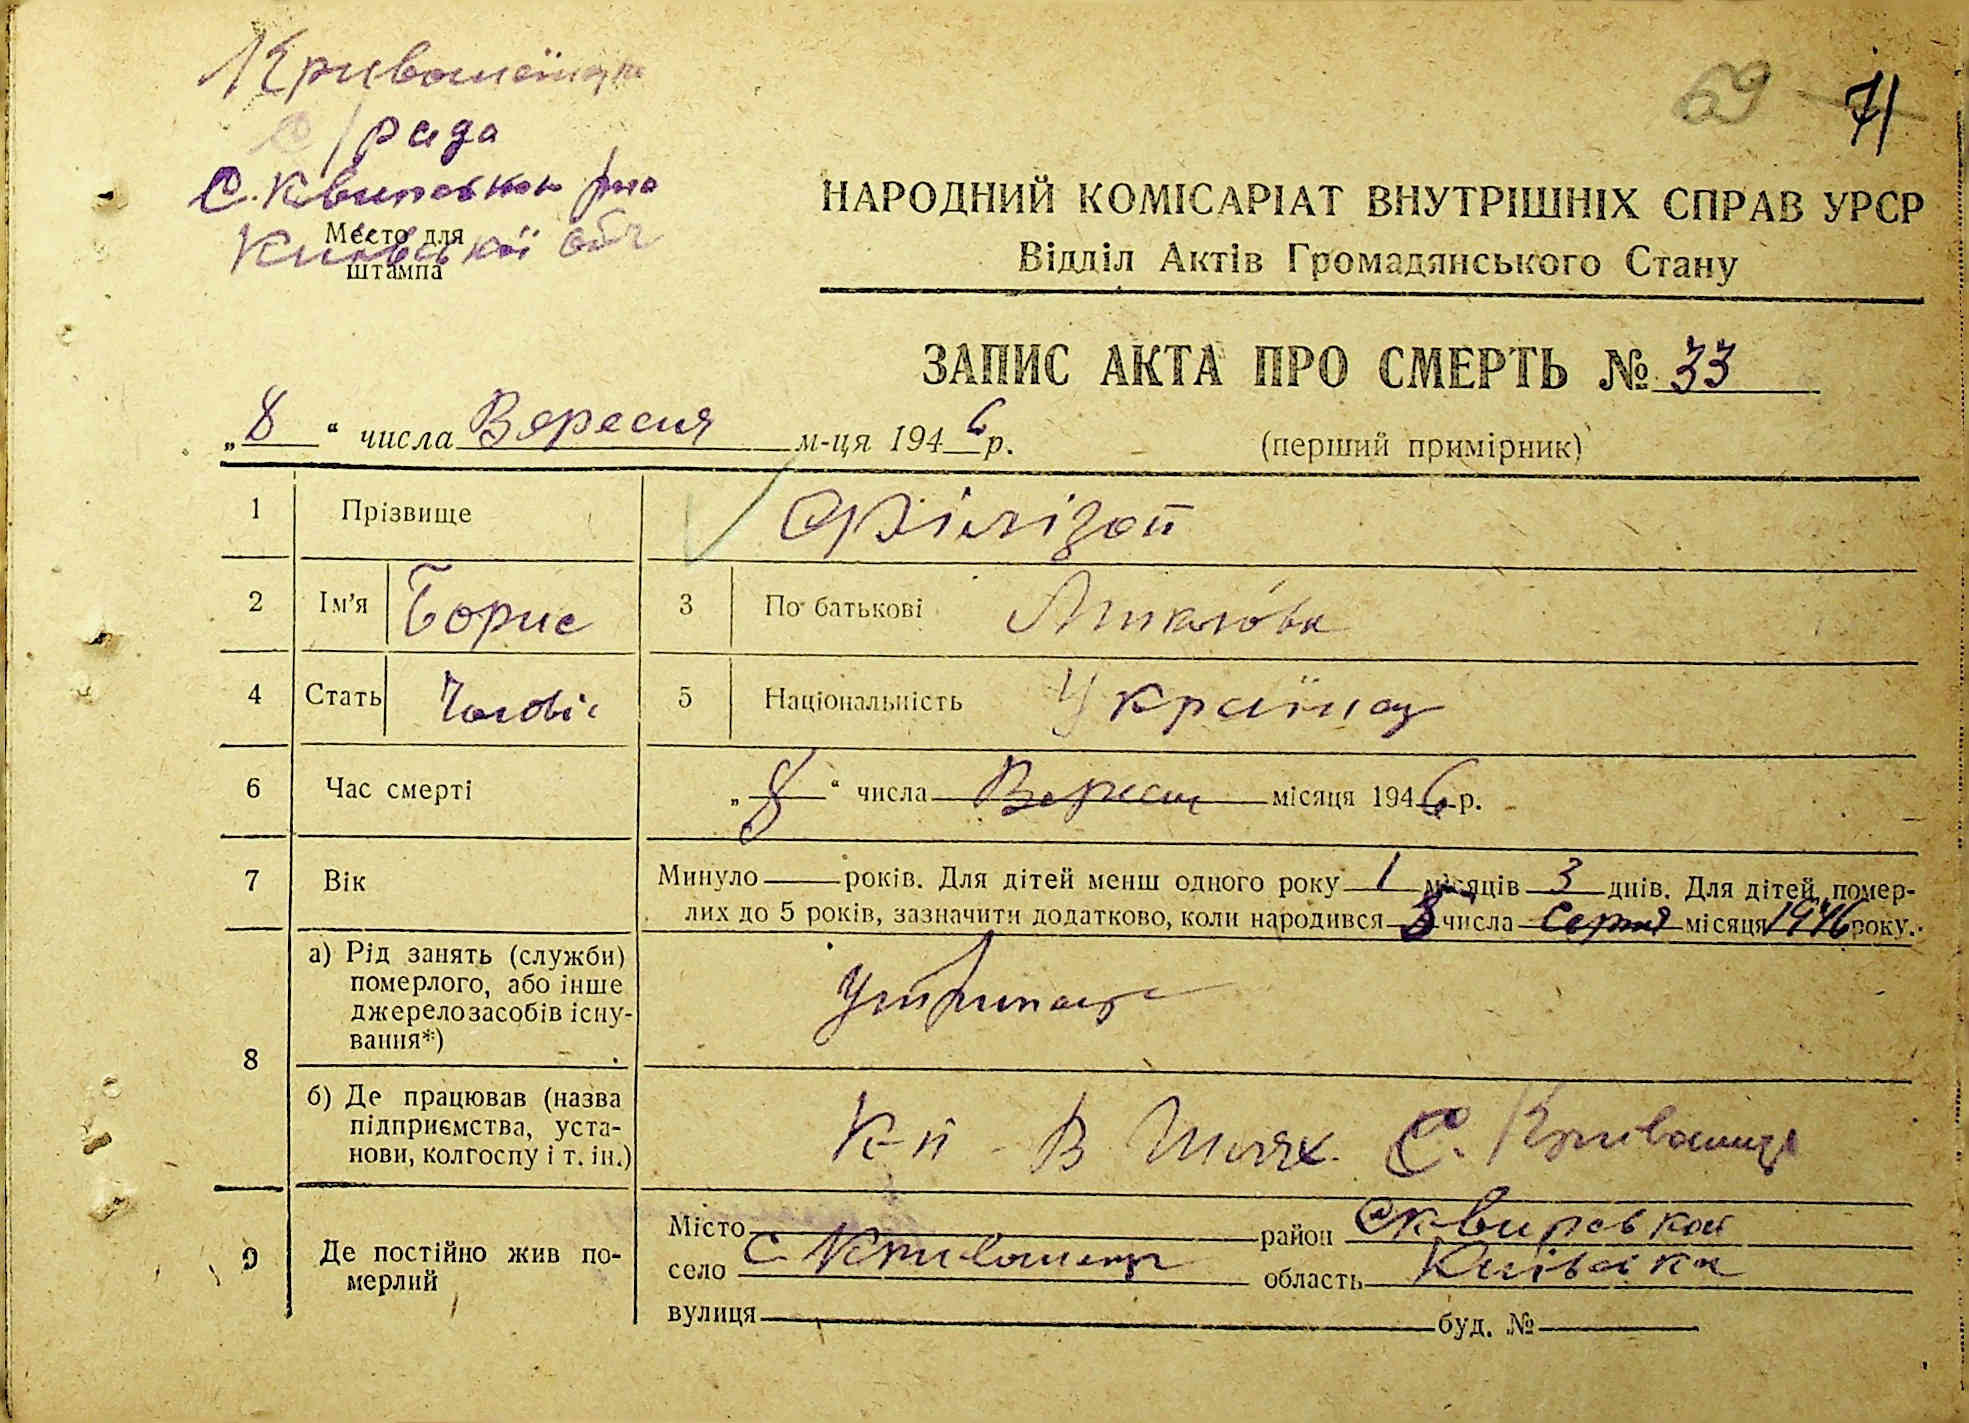 Кривошеїнц
с/рада
С. Квирської р-но
Місто для
штампа
Київської обл
69 71
НАРОДНИЙ КОМІСАРІАТ ВНУТРІШНІХ СПРАВ УРСР
Відділ Актів Громадянського Стану
ЗАПИС АКТА ПРО СМЕРТЬ № 33
„8“ числа Вересня м-ця 1946 р.
(перший примірник)
1 Прізвище
2 Ім’я Борис 3 По батькові
4 Стать Чолові 5 Національність Українец
6 Час смерті „8“ числа Вересня місяця 1946 р.
7 Вік Минуло — років. Для дітей менш одного року 1 місяців 3 днів. Для дітей, помер-
лих до 5 років, зазначити додатково, коли народився 5 числа Серпня місяця 1946 року.
8 а) Рід занять (служби)
померлого, або інше
джерело засобів існу-
вання*)
Утриманец
б) Де працював (назва
підприємства, уста-
нови, колгоспу і т. ін.)
К-п В Шлях. С. Кривошинці
9 Де постійно жив по-
мерлий
Місто район Сквирської
село С Кривошинці область Київська
вулиця буд. №